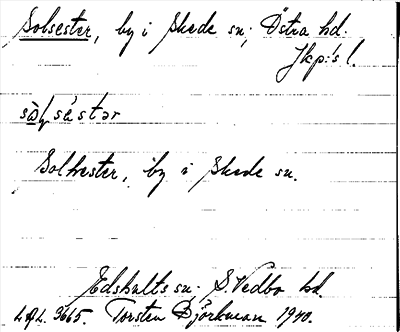 Solsester, by i Skede sn; Östra hd.
Jkp:s l.
Solhester, by i Skede sn.
Edshults sn; S. Vedbo hd.
L.A.L. 3665. Torsten Björkman 1940.